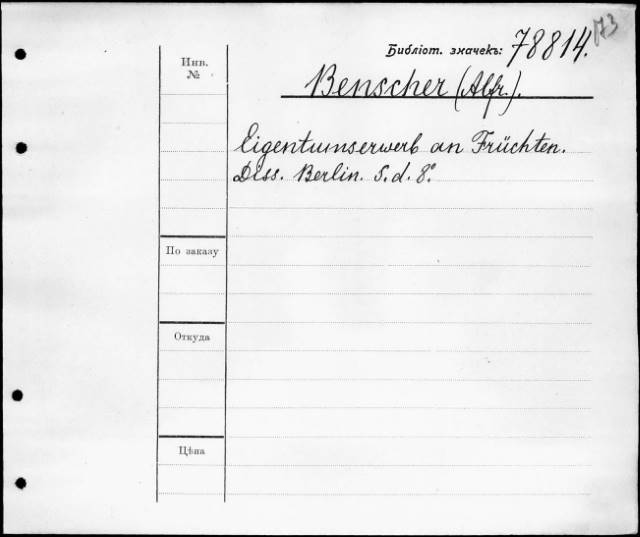 173
Библіот. значекъ: 78814.
Инв.
№
Benscher (Alfr.).
Eigentumserwerb an Früchten.
Diss. Berlin. S. d. 8°.
По заказу
Откуда
Цѣна